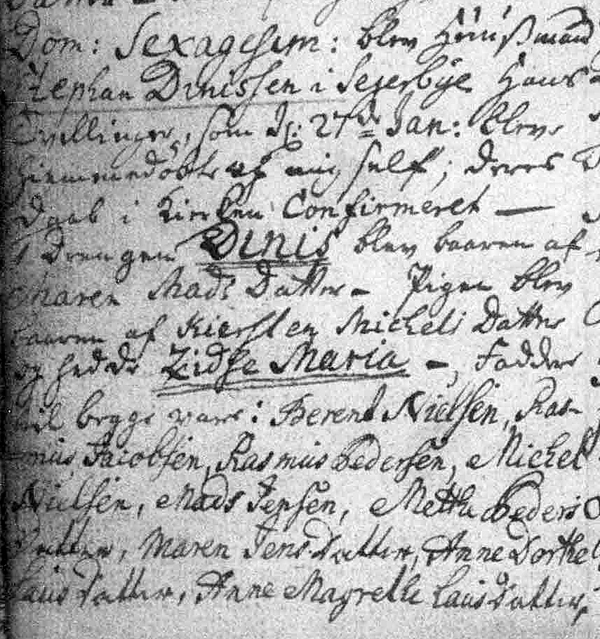 Dom: Sexagesim: blev Huusmand
Stephan Dinissen i Sejerbye Hans
Tvillinger, som d: 27de Jan: bleve
hiemmedøbte af mig self; deres
Daab i Kirken Confirmeret —
Drengen Dinis blev baaren af
Maren Mads Datter — Pigen blev
baaren af Kiersten Michels Datter
og hedde Zidse Maria —, Faddere
til begge vare: Berent Nielsen, Ras-
mus Jacobsen, Rasmus Pedersen, Michel
Nielsen, Mads Jepsen, Mette Peders
Datter, Maren Jens Datter, Anne Dorthe
Laus Datter, Anne Magrethe Laus Datter,